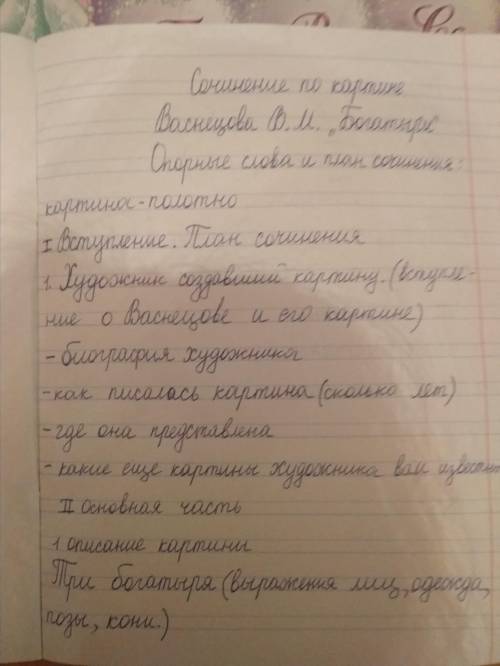 Сочинение по картине
Васнецова В.М. „Богатыри"
Опорные слова и план сочинения:
картина-полотно
I Вступление. План сочинения
1. Художник создавший картину. (вступле-
ние о Васнецове и его картине)
- биография художника
- как писалась картина (сколько лет)
- где она представлена
- какие еще картины художника вам известны
II основная часть
1 описание картины
Три богатыря (выражения лиц, одежда,
позы, кони.)